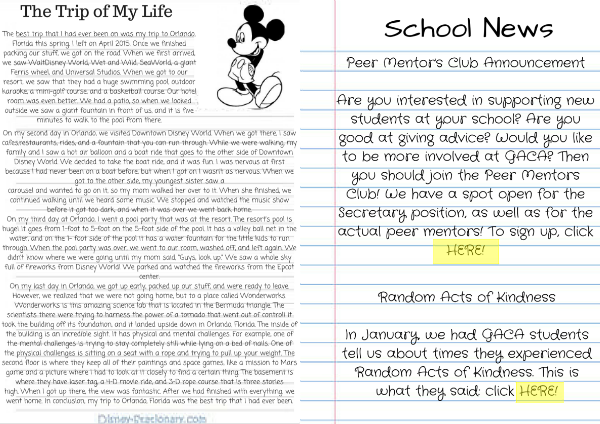 The Trip of My Life
The best trip that I had ever been on was my trip to Orlando
Florida this spring. I left on April 2015. Once we finished
packing our stuff, we got on the road. When we first arrived,
we saw WaltDisney World, Wet and Wild, SeaWorld, a giant
Ferris wheel, and Universal Studios. When we got to our
resort, we saw that they had a huge swimming pool, outdoor
karaoke, a mini-golf course, and a basketball course. Our hotel
room was even better. We had a patio, so when we looked
outside we saw a giant fountain in front of us, and it is five
minutes to walk to the pool from there.
On my second day in Orlando, we visited Downtown Disney World. When we got there, I saw
cafes,restaurants, rides, and a fountain that you can run through. While we were walking, my
family and I saw a hot air balloon and a boat ride that goes to the other side of Downtown
Disney World. We decided to take the boat ride, and it was fun. I was nervous at first
because I had never been on a boat before, but when I got on I wasn't as nervous. When we
got to the other side, my youngest sister saw a
carousel and wanted to go on it, so my mom walked her over to it. When she finished, we
continued walking until we heard some music. We stopped and watched the music show
before it got too dark, and when it was over we went back home.
On my third day of Orlando, I went a pool party that was at the resort. The resort's pool is
huge; it goes from 1-foot to 5-foot on the 5-foot side of the pool. It has a volley ball net in the
water, and on the 1- foot side of the pool it has a water fountain for the little kids to run
through. When the pool party was over, we went to our room, washed off, and left again. We
didn't know where we were going until my mom said, "Guys, look up." We saw a whole sky
full of fireworks from Disney World! We parked and watched the fireworks from the Epcot
center.
On my last day in Orlando, we got up early, packed up our stuff, and were ready to leave.
However, we realized that we were not going home, but to a place called Wonderworks.
Wonderworks is this amazing science lab that is located in the Bermuda triangle. The
scientists there were trying to harness the power of a tornado that went out of control. It
took the building off its foundation, and it landed upside down in Orlando, Florida. The inside of
the building is an incredible sight. It has physical and mental challenges. For example, one of
the mental challenges is trying to stay completely still while lying on a bed of nails. One of
the physical challenges is sitting on a seat with a rope and trying to pull up your weight. The
second floor is where they keep all of their paintings and space games, like a mission to Mars
game and a picture where I had to look at it closely to find a certain thing. The basement is
where they have laser tag, a 4-D movie ride, and 3-D rope course that is three stories
high. When I got up there, the view was fantastic. After we had finished with everything, we
went home. In conclusion, my trip to Orlando, Florida was the best trip that I had ever been.
Disney-Bractionary.com
School News
Peer Mentor's Club Announcement
Are you interested in supporting new
students at your school? Are you
good at giving advice? Would you like
to be more involved at GACA? Then
you should join the Peer Mentors
Club! We have a spot open for the
Secretary position, as well as for the
actual peer mentors! To sign up, click
HERE!
Random Acts of Kindness
In January, we had GACA students
tell us about times they experienced
Random Acts of Kindness. This is
what they said: click HERE!